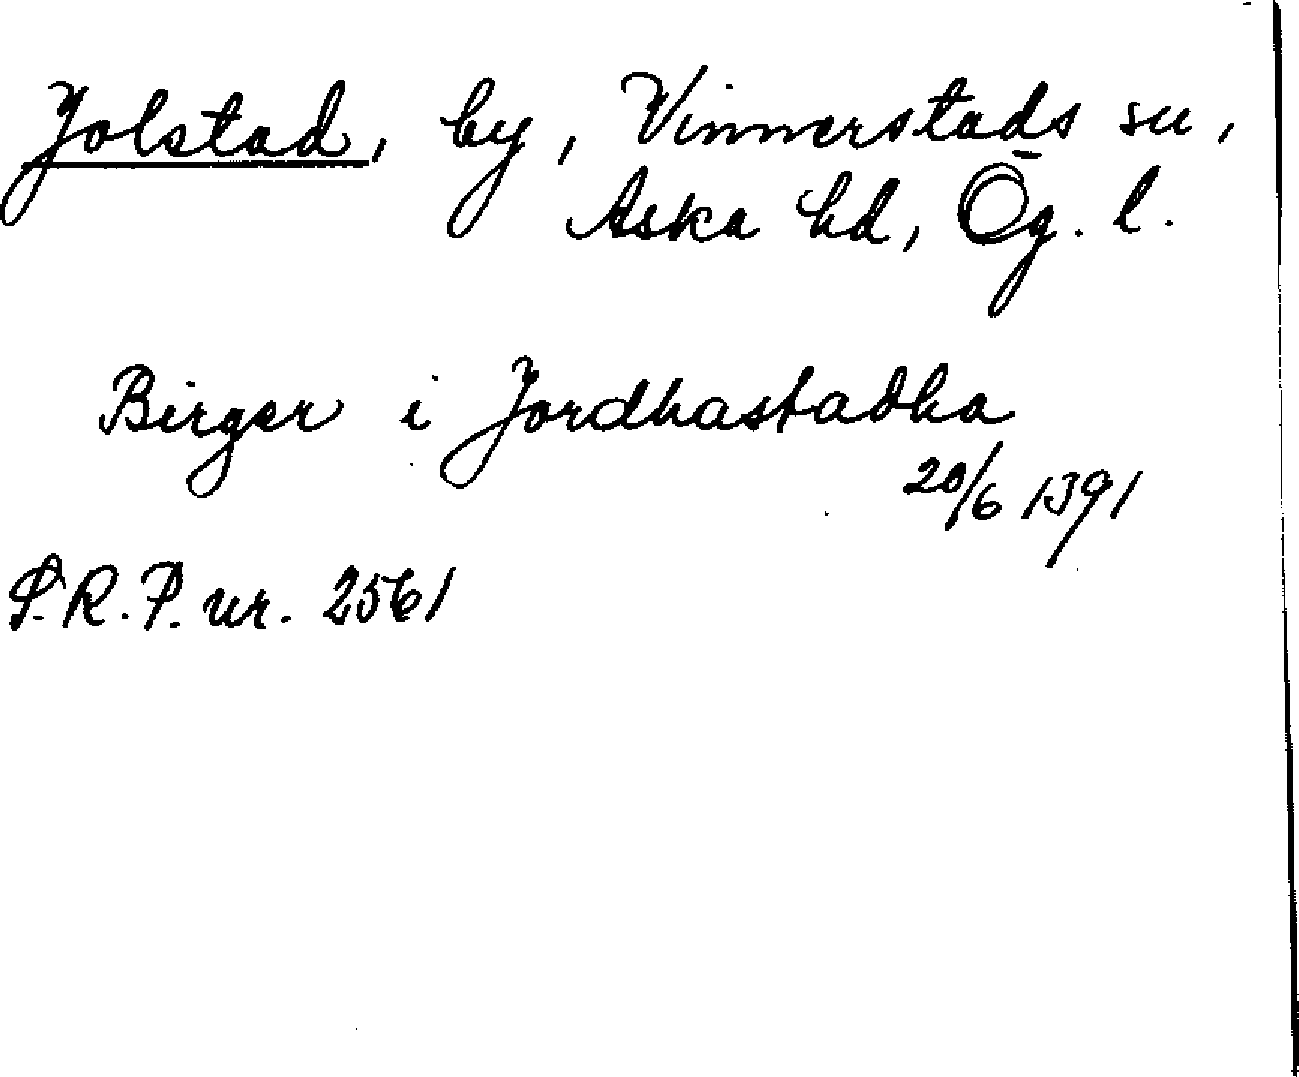 Jolstad, by, Vinnerstads sn,
Aska hd, Ög. l.
Birger i Jordhastadha
20/6 1391
S.R.P. nr. 2561